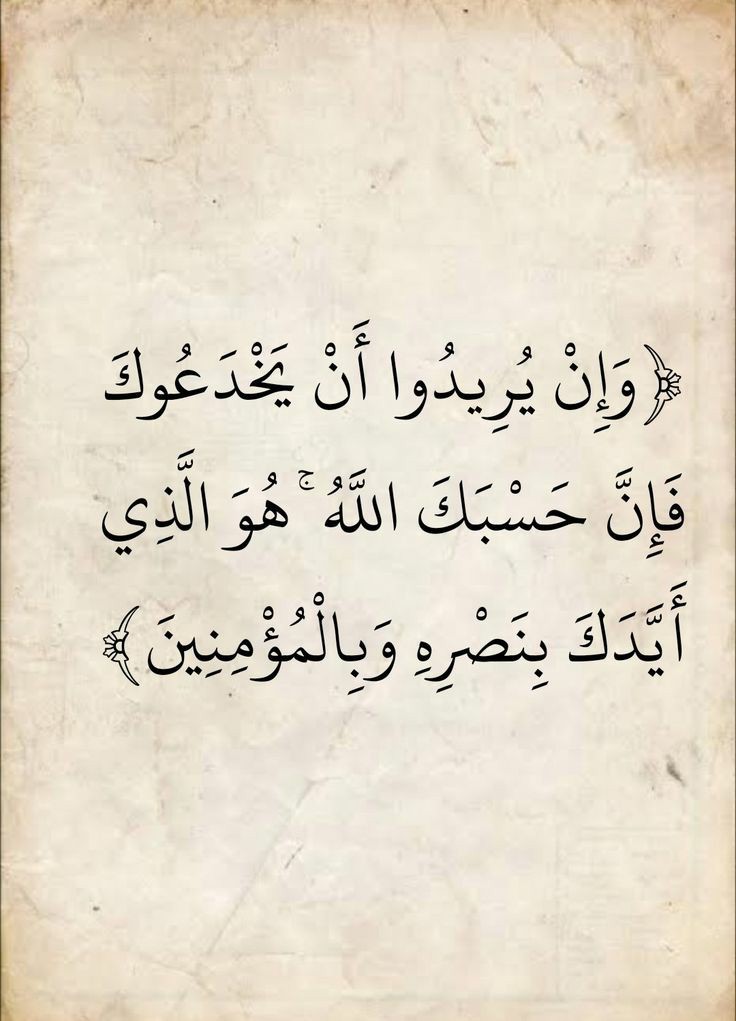 ﴿وَإِنْ يُرِيدُوا أَنْ يَخْدَعُوكَ
فَإِنَّ حَسْبَكَ اللَّهُ ۚ هُوَ الَّذِي
أَيَّدَكَ بِنَصْرِهِ وَبِالْمُؤْمِنِينَ﴾